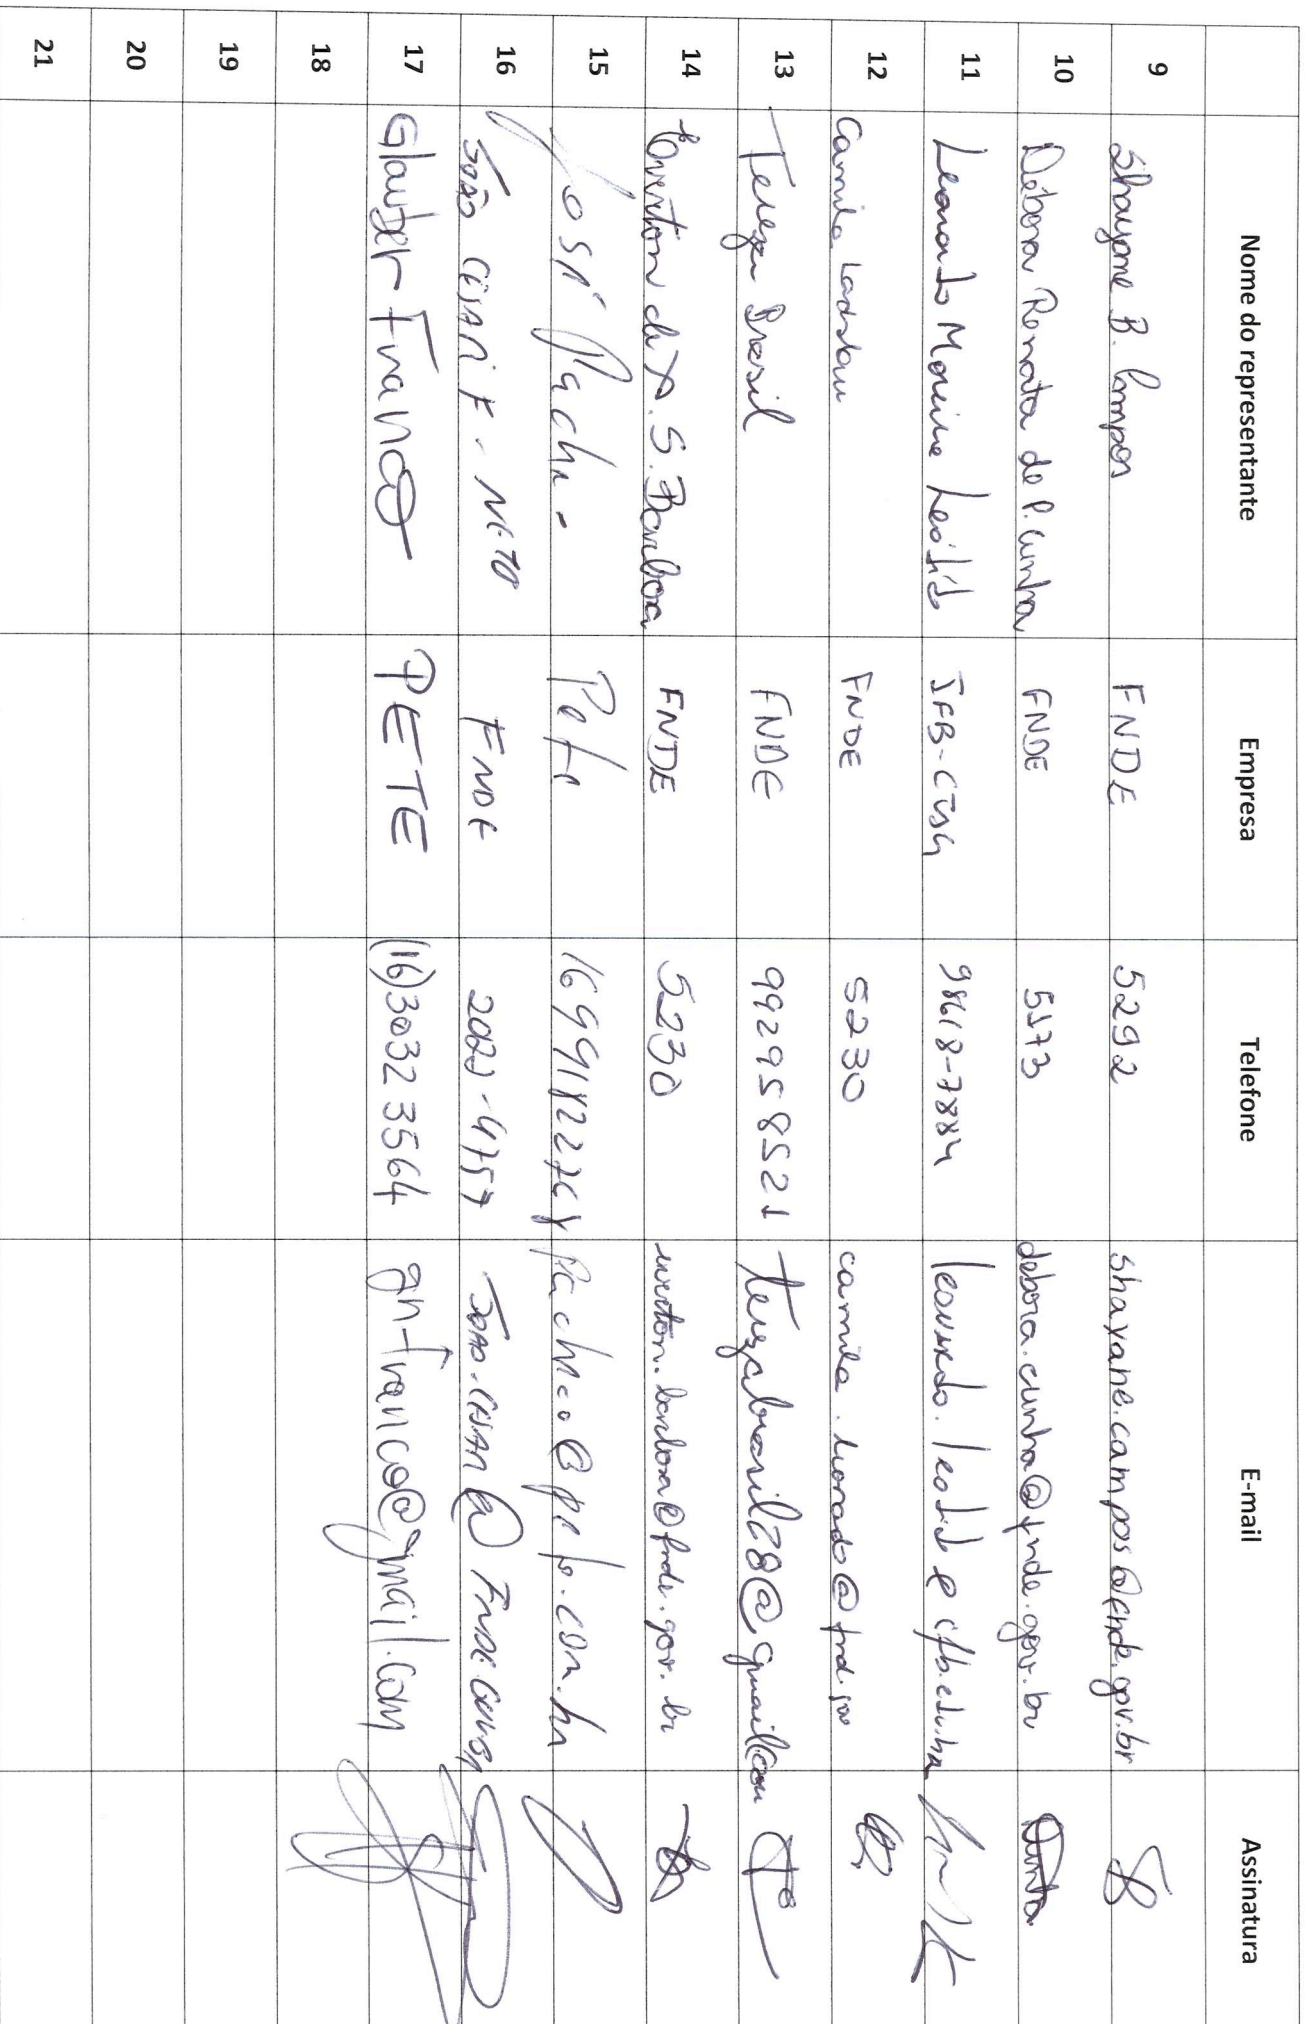 Nome do representante Empresa Telefone E-mail Assinatura
9 Shayane B. Campos FNDE 5292 shayane.campos@fnde.gov.br
10 Débora Renata de P. Cunha FNDE 5173 debora.cunha@fnde.gov.br Cunha
11 Leonardo Moreira Leódido IFB- 98618-7884 leonardo.leodido@ifb.edu.br
12 Camila FNDE 5230 camila.
13 Tereza Brasil FNDE 992958521 terezabrasil28@gmail.com
14 Everton de X. S. Barbosa FNDE 5230 everton.barbosa@fnde.gov.br
15 José 
16 João César F. Neto FNDE 2022-4757 
17 Glauber Franco PETE (16)30323564 gn-franco@gmail.com
18
19
20
21